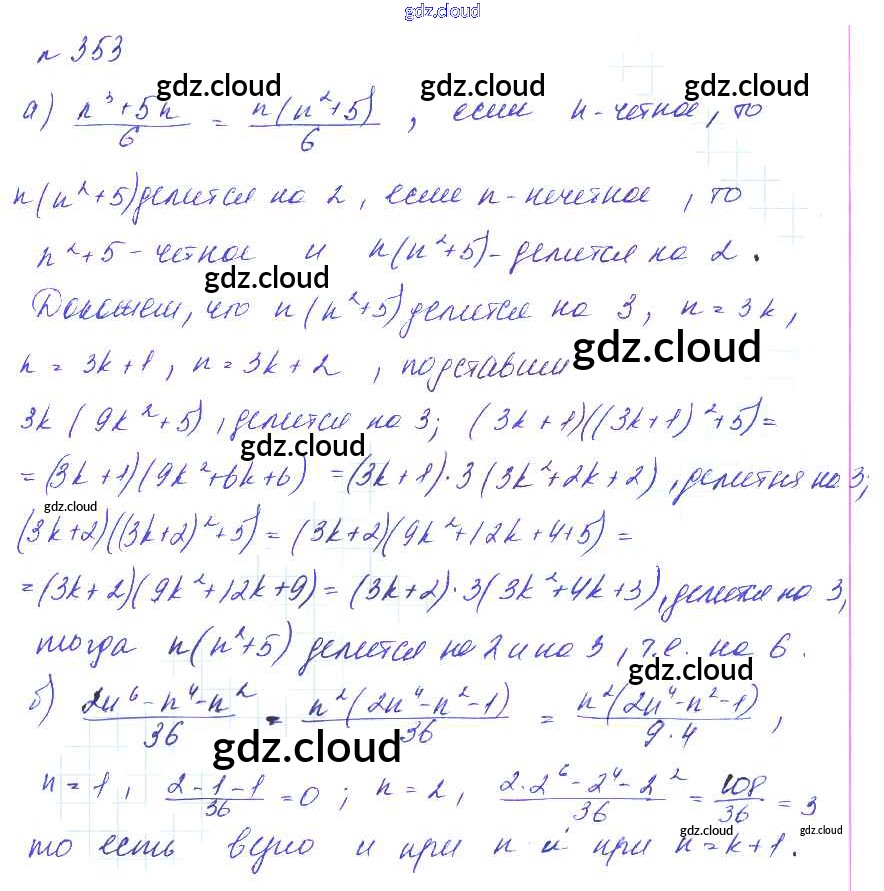 gdz.cloud
n 353
gdz.cloud gdz.cloud gdz.cloud
а) (n³+5n)/6 = n(n²+5)/6 , если n-четное, то
n(n²+5) делится на 2, если n-нечетное , то
n²+5-четное и n(n²+5)-делится на 2.
gdz.cloud
Докажем, что n(n²+5) делится на 3, n=3k,
n=3k+1, n=3k+2 , подставим
gdz.cloud
3k(9k²+5), делится на 3; (3k+1)((3k+1)²+5)=
gdz.cloud
=(3k+1)(9k²+6k+6) =(3k+1)·3(3k²+2k+2), делится на 3;
gdz.cloud
(3k+2)((3k+2)²+5)=(3k+2)(9k²+12k+4+5)=
=(3k+2)(9k²+12k+9)=(3k+2)·3(3k²+4k+3), делится на 3,
тогда n(n²+5) делится на 2 и на 3, т.е. на 6.
gdz.cloud
б) (2n⁶-n⁴-n²)/36 = n²(2n⁴-n²-1)/36 = n²(2n⁴-n²-1)/9·4 ,
gdz.cloud
n=1, (2-1-1)/36=0; n=2, (2·2⁶-2⁴-2²)/36=108/36=3
gdz.cloud gdz.cloud
то есть верно и при n и при n=k+1.
gdz.cloud